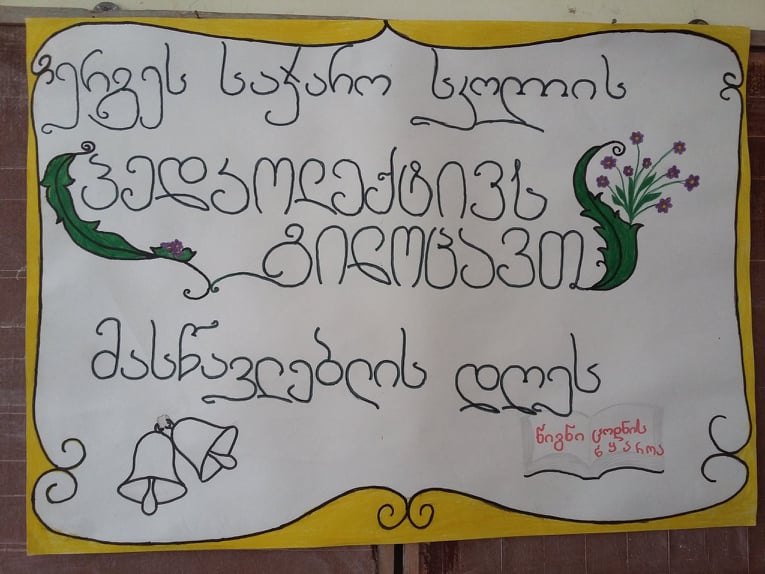 ერგეს საჯარო სკოლის
პედკოლექტივს
გილოცავთ
მასწავლებლის დღეს
წიგნი ცოდნის
წყაროა